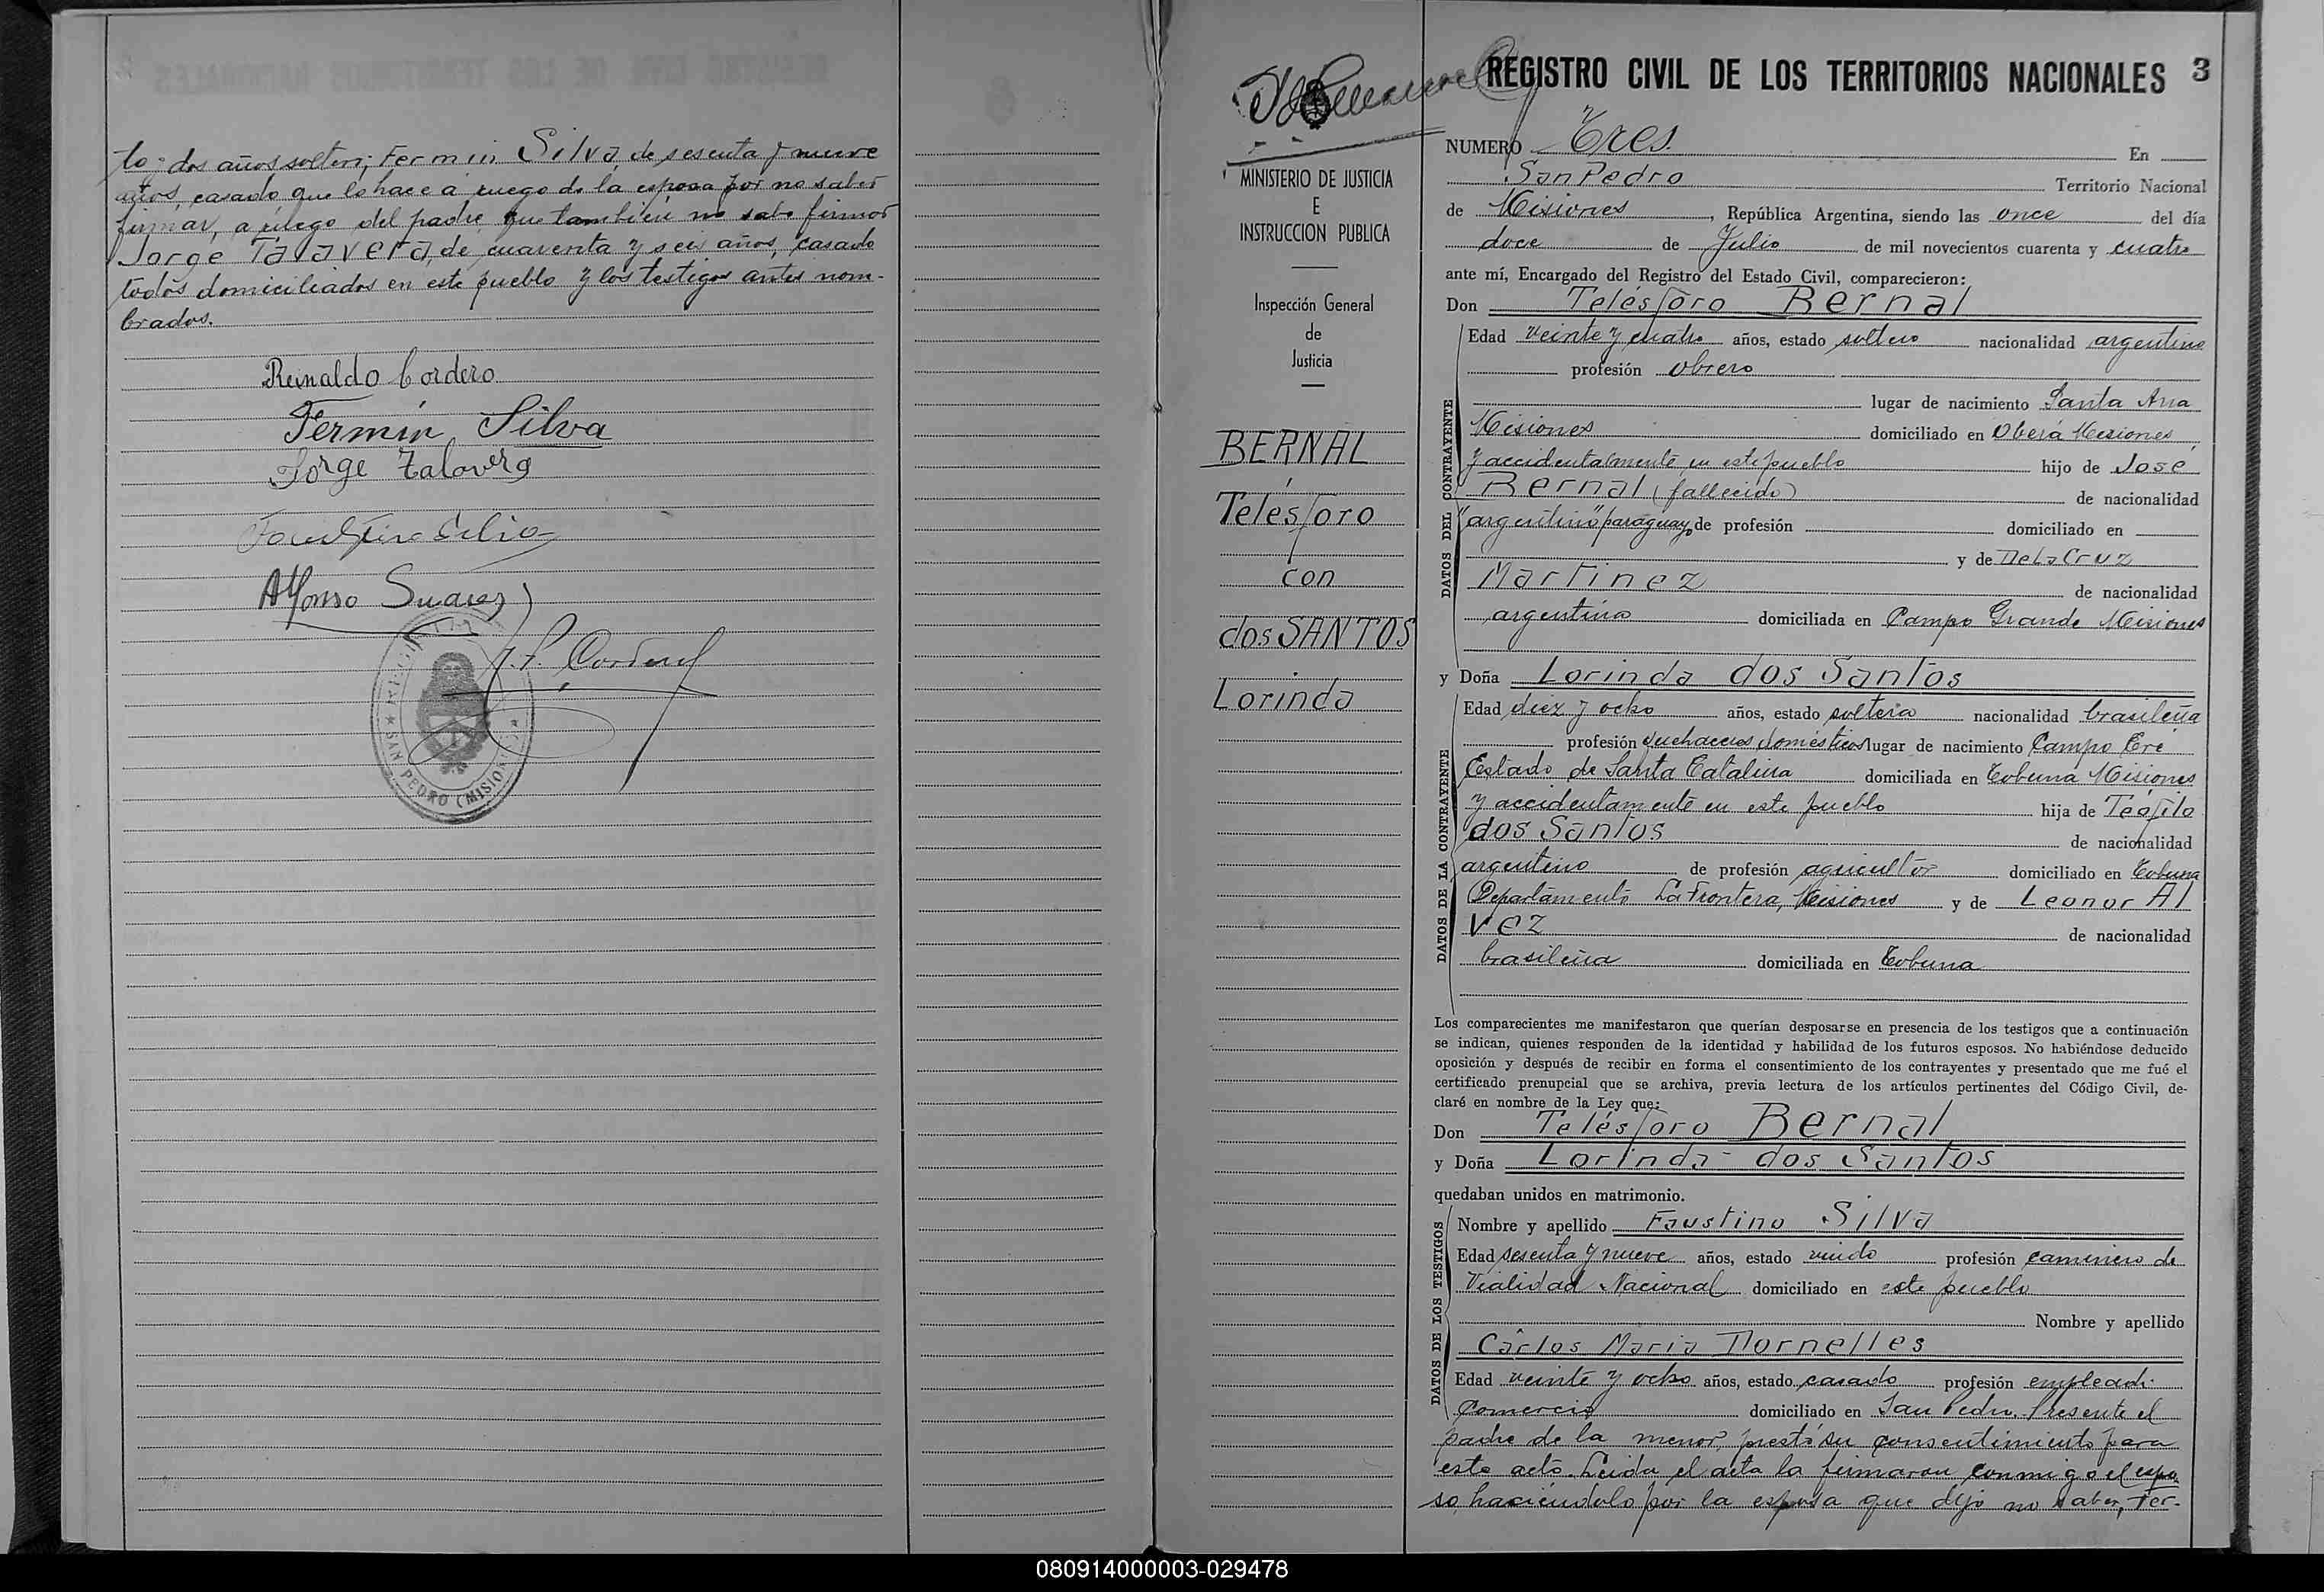 to: dos años soltero; Fermín Silva, de sesenta y nueve
años, casado que lo hace a ruego de la esposa por no saber
firmar, a ruego del padre que también no sabe firmar
Jorge Talavera, de cuarenta y seis años, casado
todos domiciliados en este pueblo y los testigos antes nom-
brados.
Reinaldo Cordero
Fermin Silva
Jorge Talavera
Alfonso Suarez
SAN PEDRO (MISIONES)
REGISTRO CIVIL DE LOS TERRITORIOS NACIONALES 3
MINISTERIO DE JUSTICIA
E
INSTRUCCION PUBLICA
Inspección General
de
Justicia
BERNAL
Telésforo
con
dos SANTOS
Lorinda
NUMERO Tres. En
San Pedro Territorio Nacional
de Misiones, República Argentina, siendo las once del día
doce de Julio de mil novecientos cuarenta y cuatro
ante mí, Encargado del Registro del Estado Civil, comparecieron:
Don Telésforo Bernal
Edad veinte y cuatro años, estado soltero nacionalidad argentino
profesión obrero
lugar de nacimiento Santa Ana
Misiones domiciliado en Oberá Misiones
y accidentalmente en este pueblo hijo de José
Bernal (fallecido) de nacionalidad
"argentino" paraguayo de profesión domiciliado en
y de De la Cruz
Martinez de nacionalidad
argentina domiciliada en Campo Grande Misiones
y Doña Lorinda dos Santos
Edad diez y ocho años, estado soltera nacionalidad brasileña
profesión quehaceres domésticos lugar de nacimiento Campo Eré
Estado de Santa Catalina domiciliada en Tobuna Misiones
y accidentamente en este pueblo hija de Teófilo
dos Santos de nacionalidad
argentino de profesión agricultor domiciliado en Tobuna
Departamento La Frontera, Misiones y de Leonor Al
vez de nacionalidad
brasileña domiciliada en Tobuna
DATOS DEL CONTRAYENTE
DATOS DE LA CONTRAYENTE
Los comparecientes me manifestaron que querían desposarse en presencia de los testigos que a continuación
se indican, quienes responden de la identidad y habilidad de los futuros esposos. No habiéndose deducido
oposición y después de recibir en forma el consentimiento de los contrayentes y presentado que me fué el
certificado prenupcial que se archiva, previa lectura de los artículos pertinentes del Código Civil, de-
claré en nombre de la Ley que:
Don Telésforo Bernal
y Doña Lorinda dos Santos
quedaban unidos en matrimonio.
DATOS DE LOS TESTIGOS
Nombre y apellido Faustino Silva
Edad sesenta y nueve años, estado viudo profesión caminero de
Vialidad Nacional domiciliado en este pueblo
Nombre y apellido
Cárlos Maria Dornelles
Edad veinte y ocho años, estado casado profesión empleado
Comercio domiciliado en San Pedro. Presente el
padre de la menor, prestó su consentimiento para
este acto. Leida el acta la firmaron conmigo el espo-
so, haciéndolo por la esposa que dijo no saber, Fer-
080914000003-029478